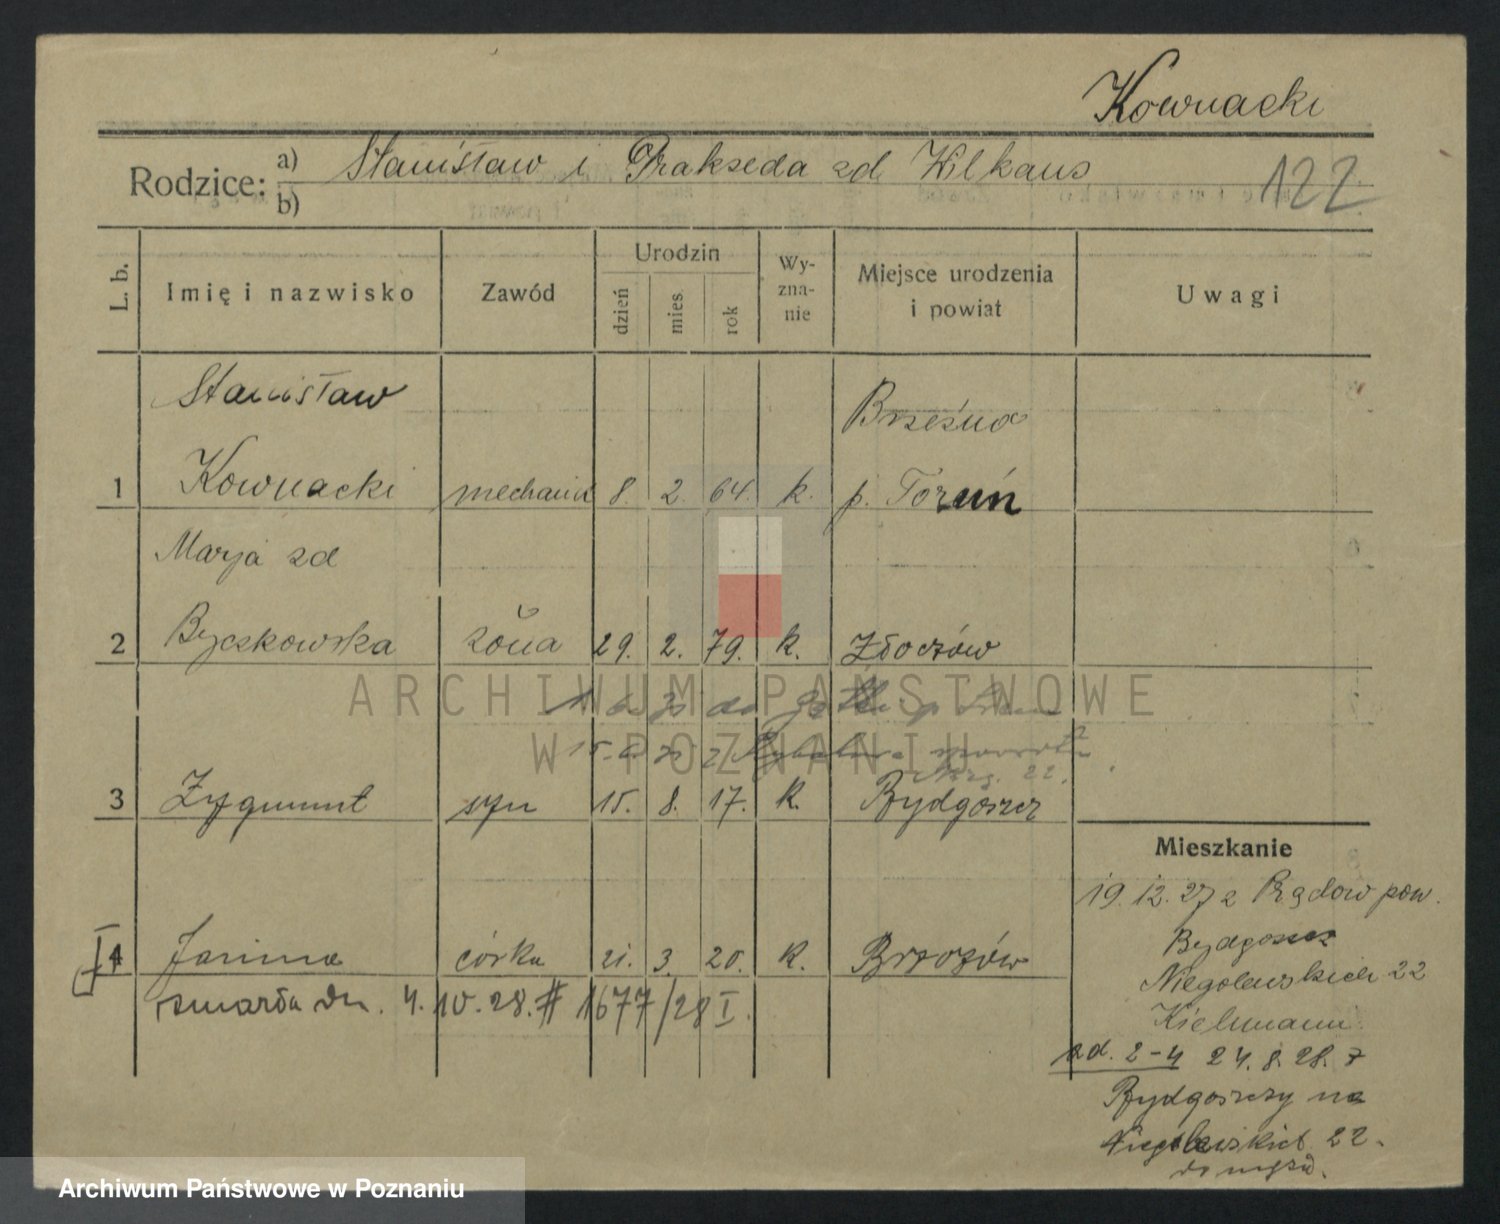 Kownacki
Rodzice: a) Stanisław i Prakseda zd Wilkans
b)
122
L. b. Imię i nazwisko Zawód Urodzin dzień mies. rok Wy-zna-nie Miejsce urodzenia i powiat Uwagi
Stanisław Brzeźna
1 Kownacki mechanik 8. 2. 64. k. p. Toruń
Marja zd
2 Byczkowska żona 29. 2. 79. k. Złoczów
3 Zygmunt syn 15. 8. 17. k. Bydgoszcz
4 Janina córka 21. 3. 20. k. Brzozów
zmarła dn. 4. 10. 28. # 1677/28 I.
Mieszkanie
19. 12. 27 z Prądów pow.
Bydgoszcz
Niegolewskich 22
Kielmann
ad. 2-4 24. 8. 28. z
Bydgoszczy na
Niegolewskich 22.
do męża.
ARCHIWUM PAŃSTWOWE
W POZNANIU
Archiwum Państwowe w Poznaniu